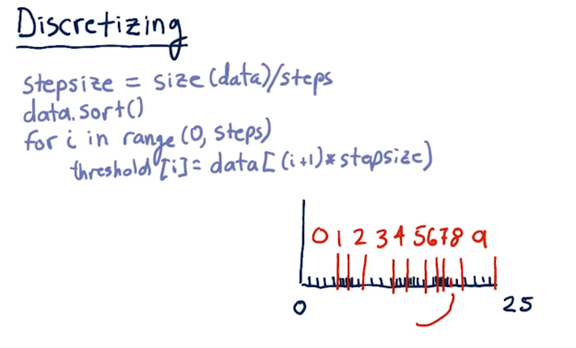 Discretizing
stepsize = size(data)/steps
data.sort()
for i in range(0, steps)
threshold[i] = data[(i+1)*stepsize)
0 1 2 3 4 5 6 7 8 9
0 25